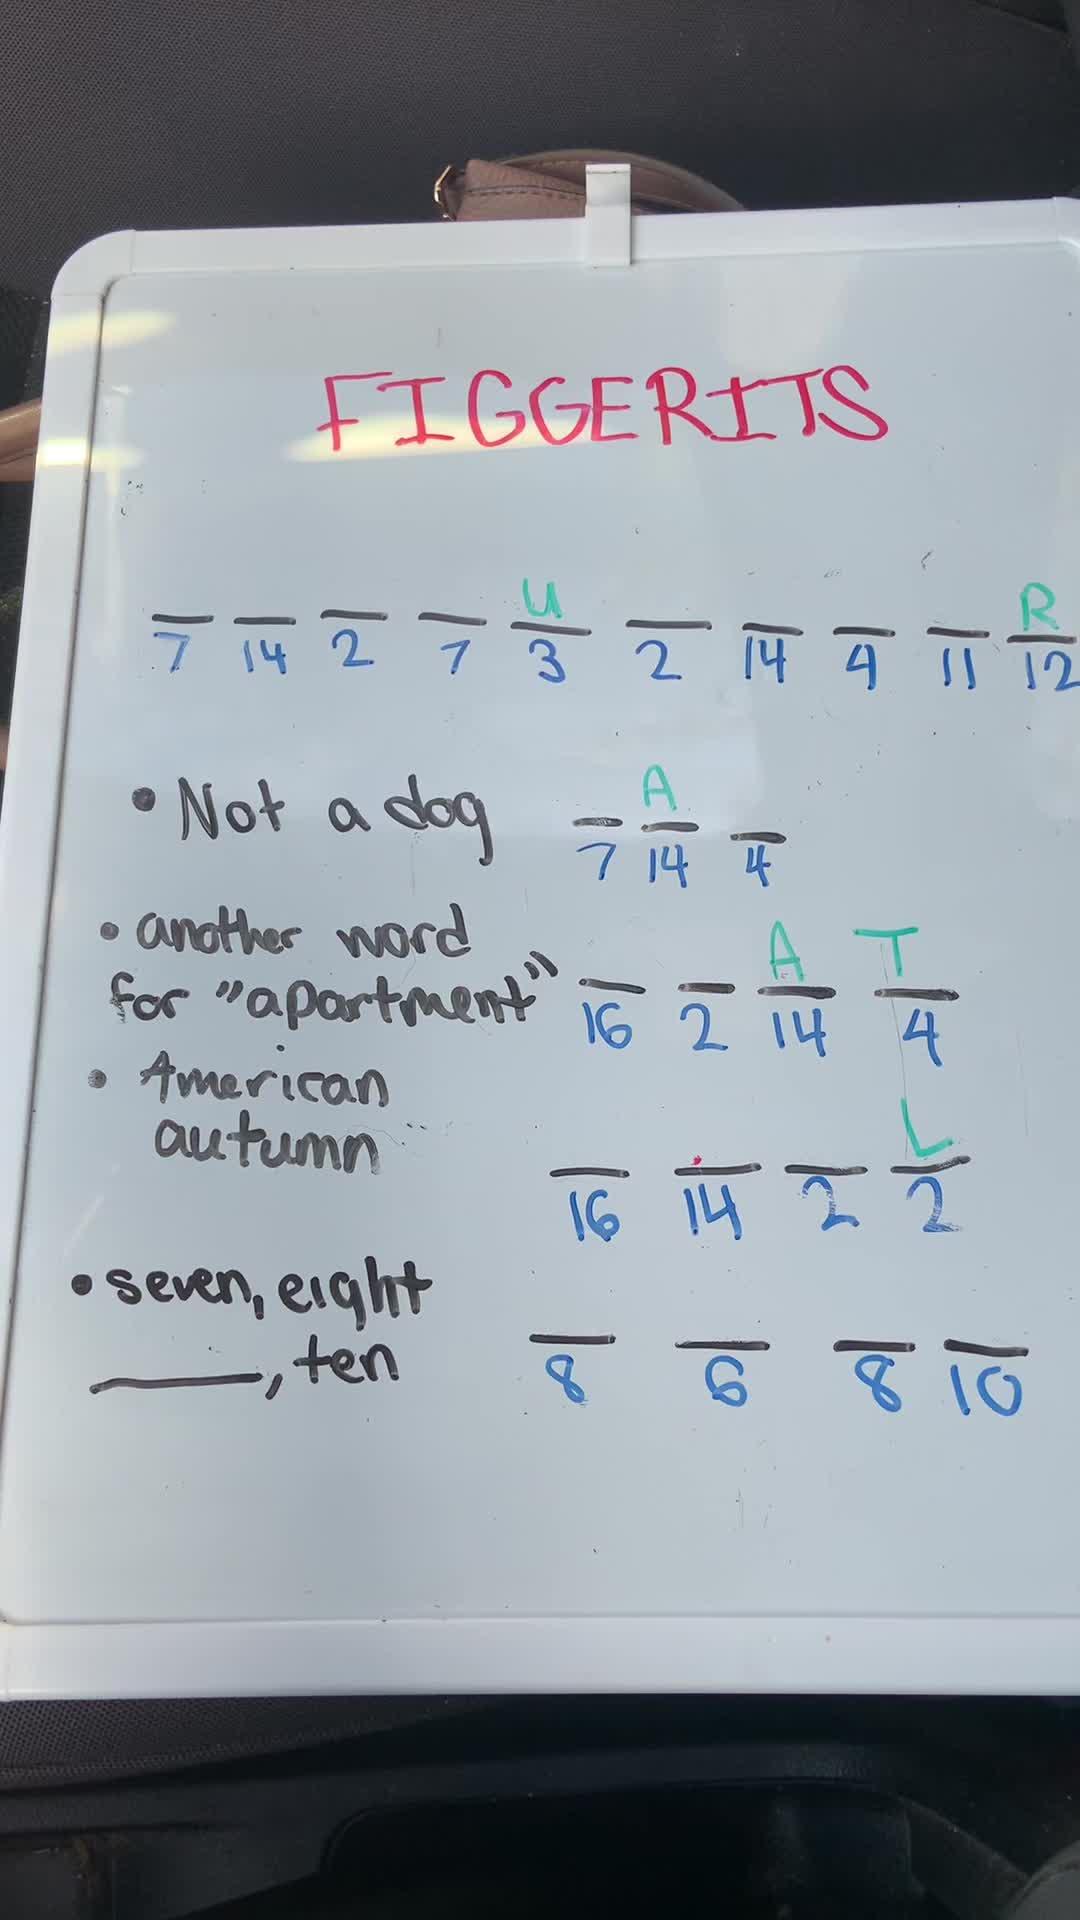 FIGGERITS
U R
7 14 2 7 3 2 14 4 11 12
• Not a dog
A
7 14 4
• another word
for "apartment"
A T
16 2 14 4
• American
autumn
L
16 14 2 2
• seven, eight
____, ten
8 6 8 10